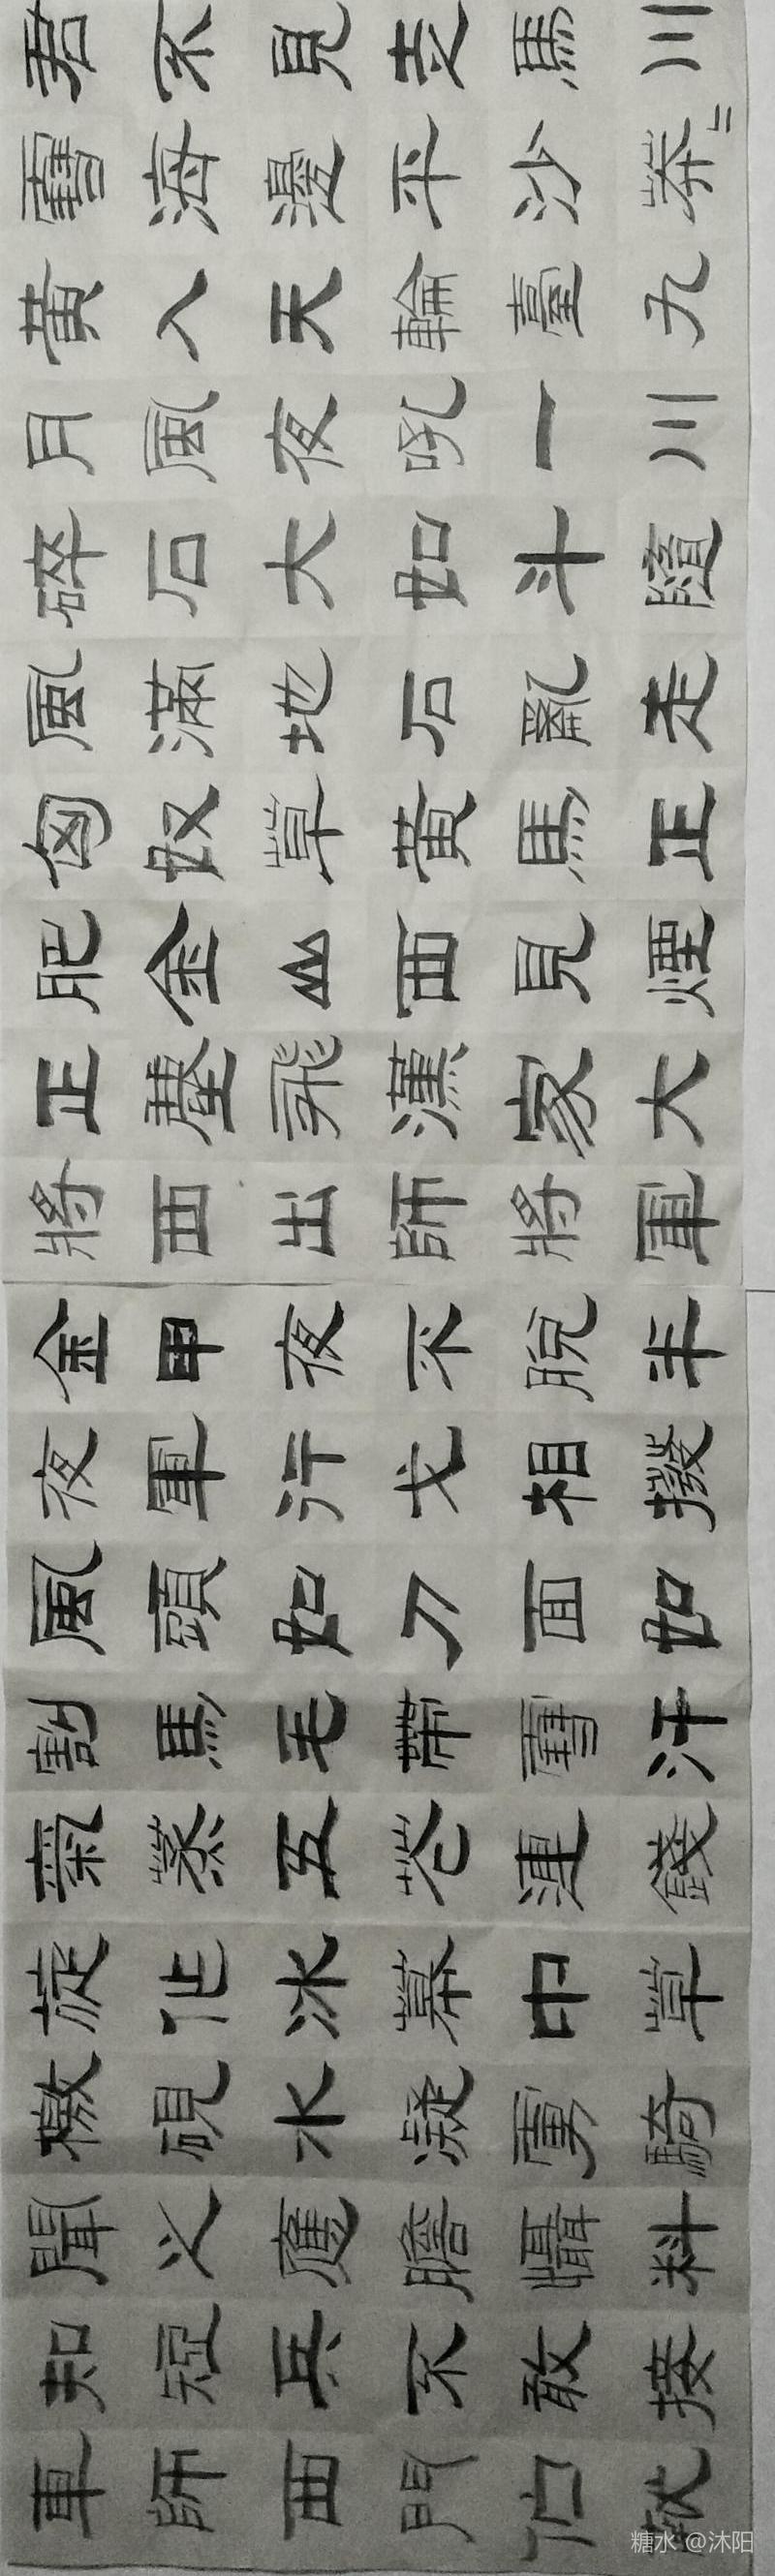 君不見走馬川
雪海邊平沙莽〻
黃入天輪臺九
月風夜吼一川
碎石大如斗隨
風滿地石亂走
匈奴草黃馬正
肥金山西見煙
正塵飛漢家大
將西出師將軍
金甲夜不脫半
夜軍行戈相撥
風頭如刀面如
割馬毛帶雪汗
氣蒸五花連錢
旋作冰幕中草
檄硯水凝虜騎
聞之應膽懾料
知短兵不敢接
車師西門佇獻
糖水 @沐阳